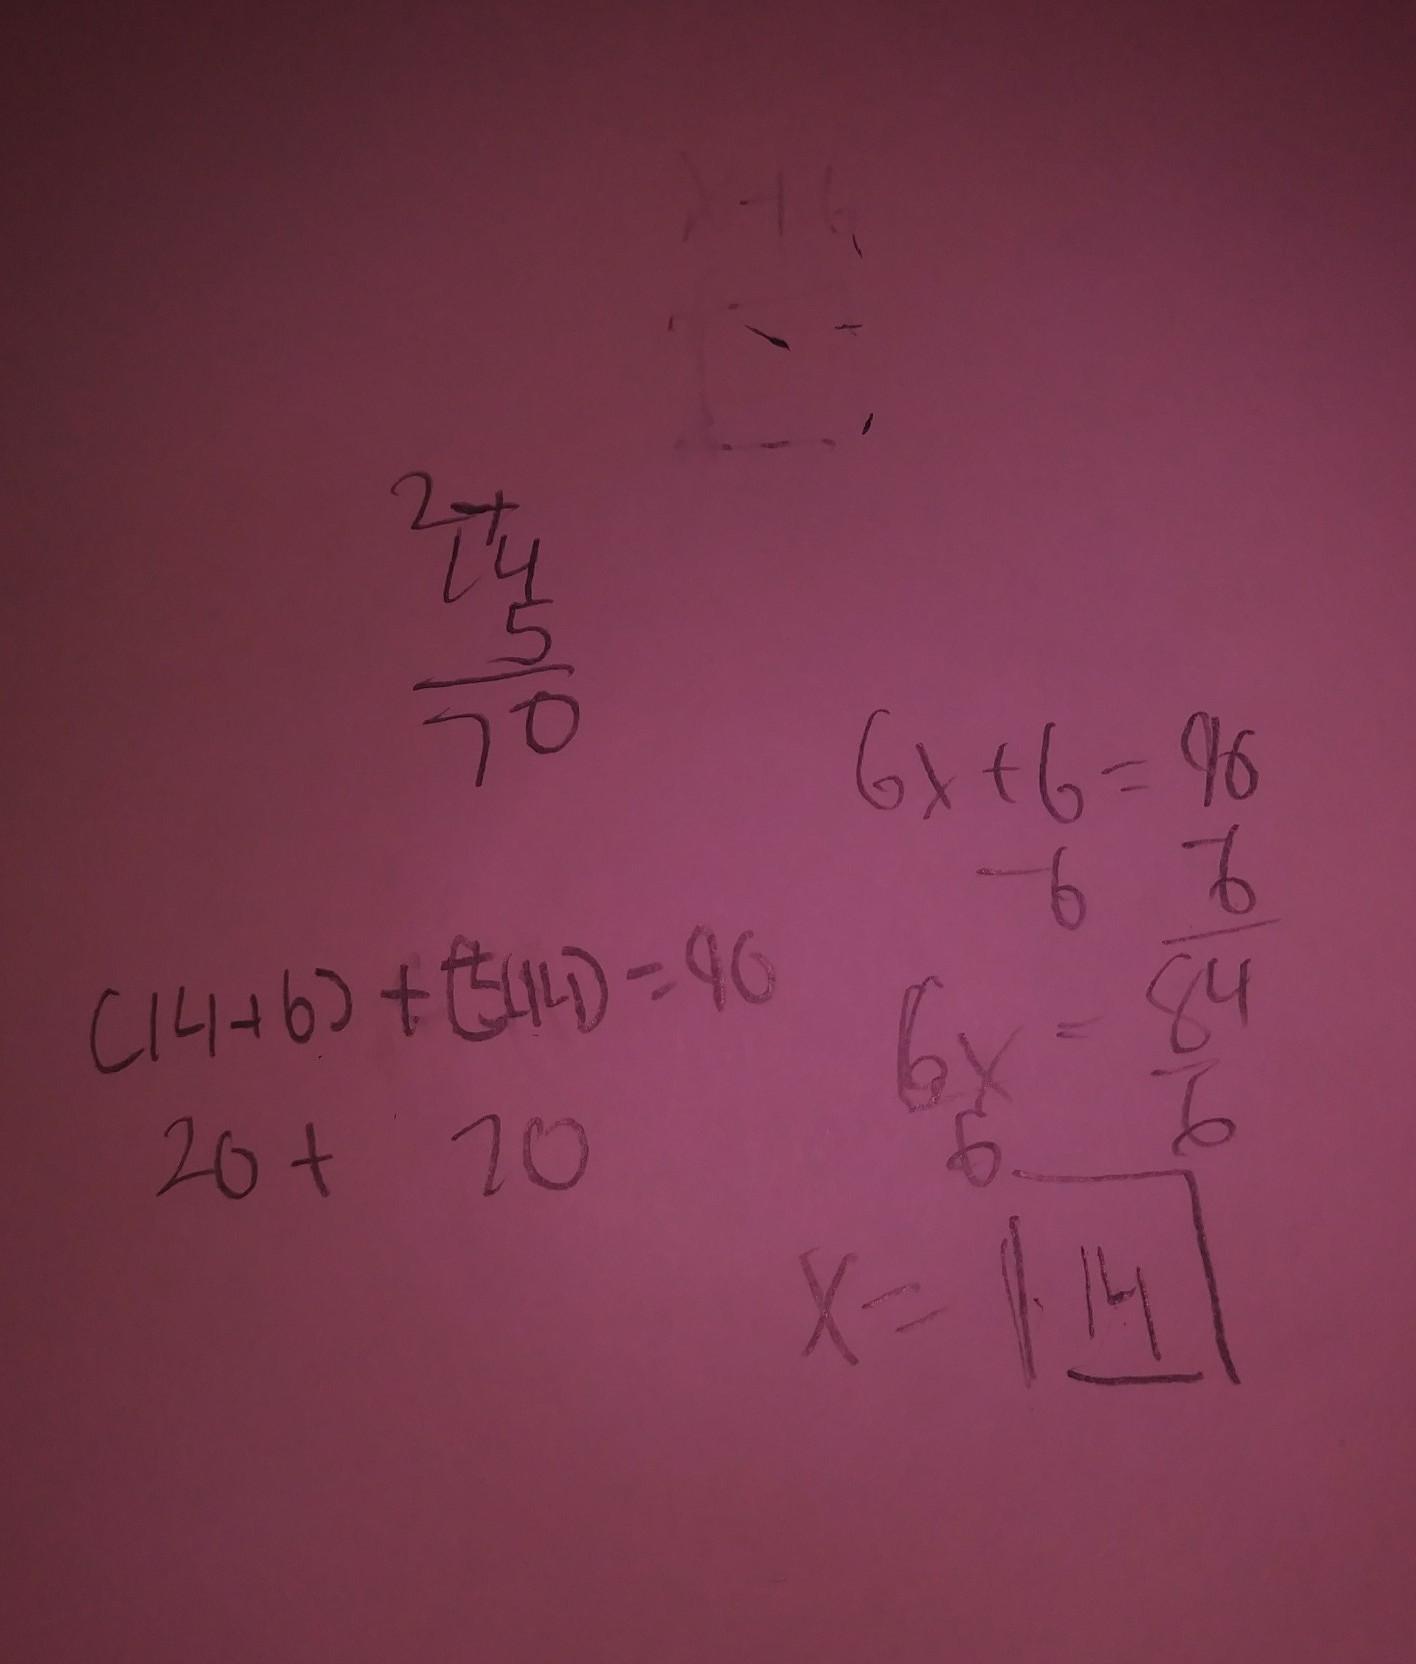 x+6
2+
14
5
70
6x+6=90
-6 -6
6x = 84
6 6
x= 14
(14+6)+(5(14))=90
20+ 70